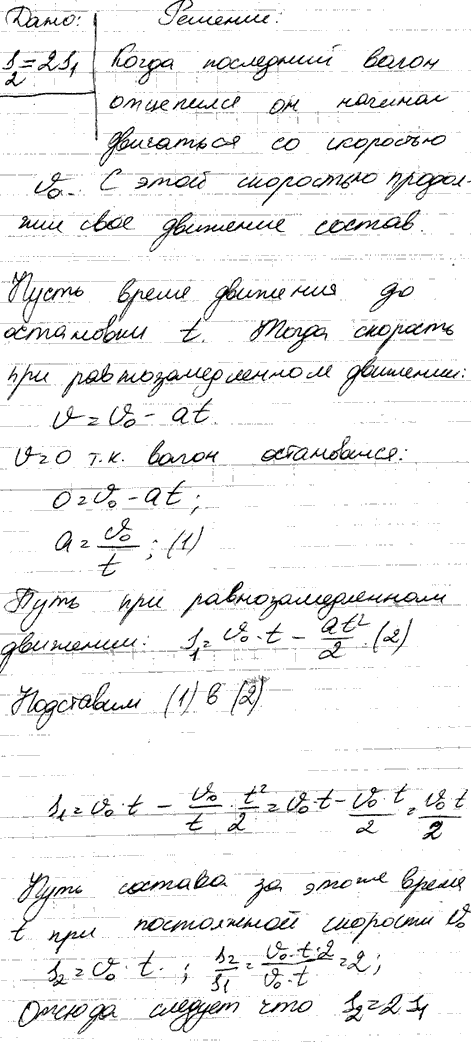 Дано: Решение:
S₂=2S₁ Когда последний вагон
отцепился он начинал
двигаться со скоростью
υ₀. С этой скоростью продол-
жил свое движение состав.
Пусть время движения до
остановки t. Тогда скорость
при равнозамедленном движении:
υ=υ₀-at.
υ=0 т.к. вагон остановился:
0=υ₀-at;
a=υ₀/t; (1)
Путь при равнозамедленном
движении: S₁=υ₀·t - at²/2 (2)
Подставим (1) в (2)
S₁=υ₀·t - υ₀/t · t²/2 = υ₀·t - υ₀·t/2 = υ₀t/2
Путь состава за это же время
t при постоянной скорости υ₀
S₂=υ₀·t.; S₂/S₁=υ₀·t·2/υ₀·t=2;
Отсюда следует что S₂=2S₁